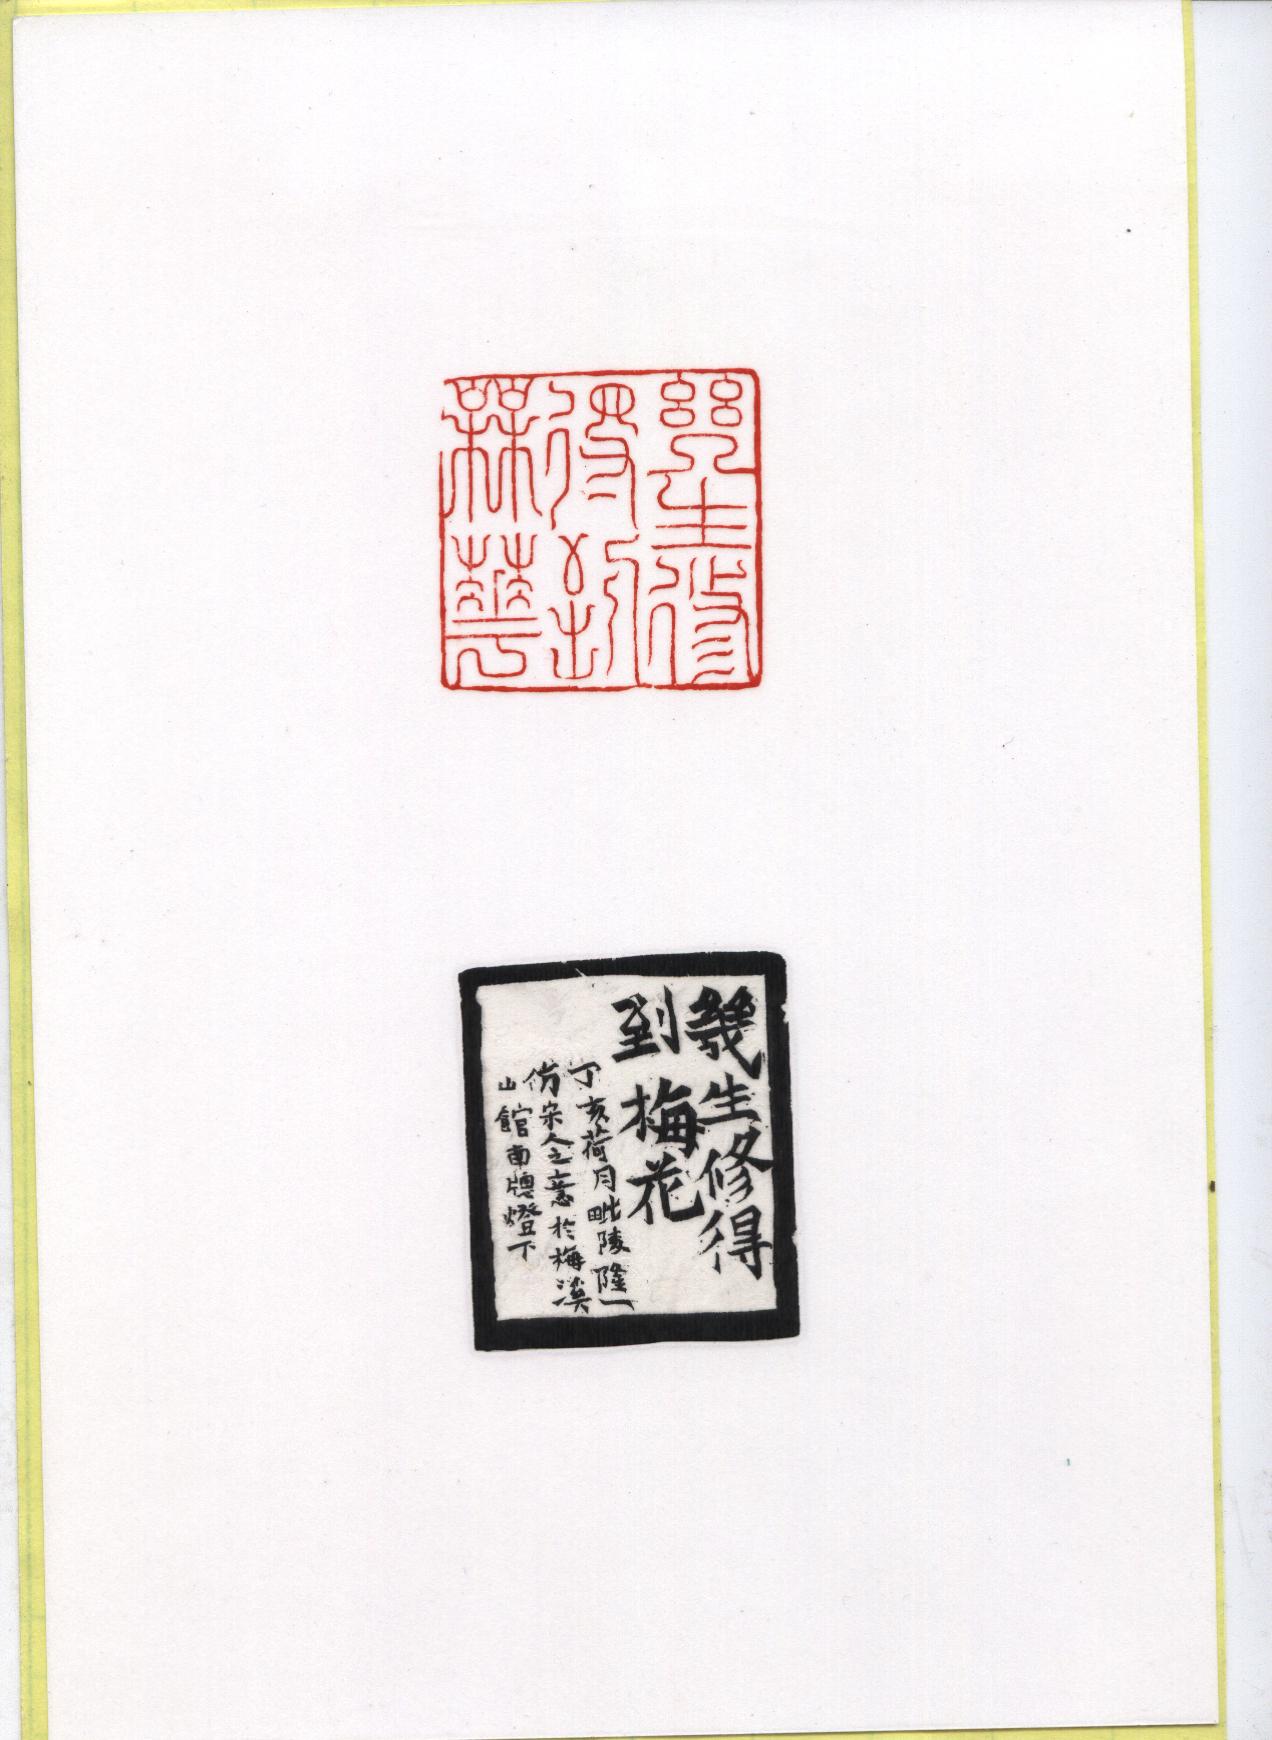 幾生修
得到
楳華
幾生修得
到梅花
丁亥荷月毗陵隆一
仿宋人之意於梅溪
山館南牕燈下